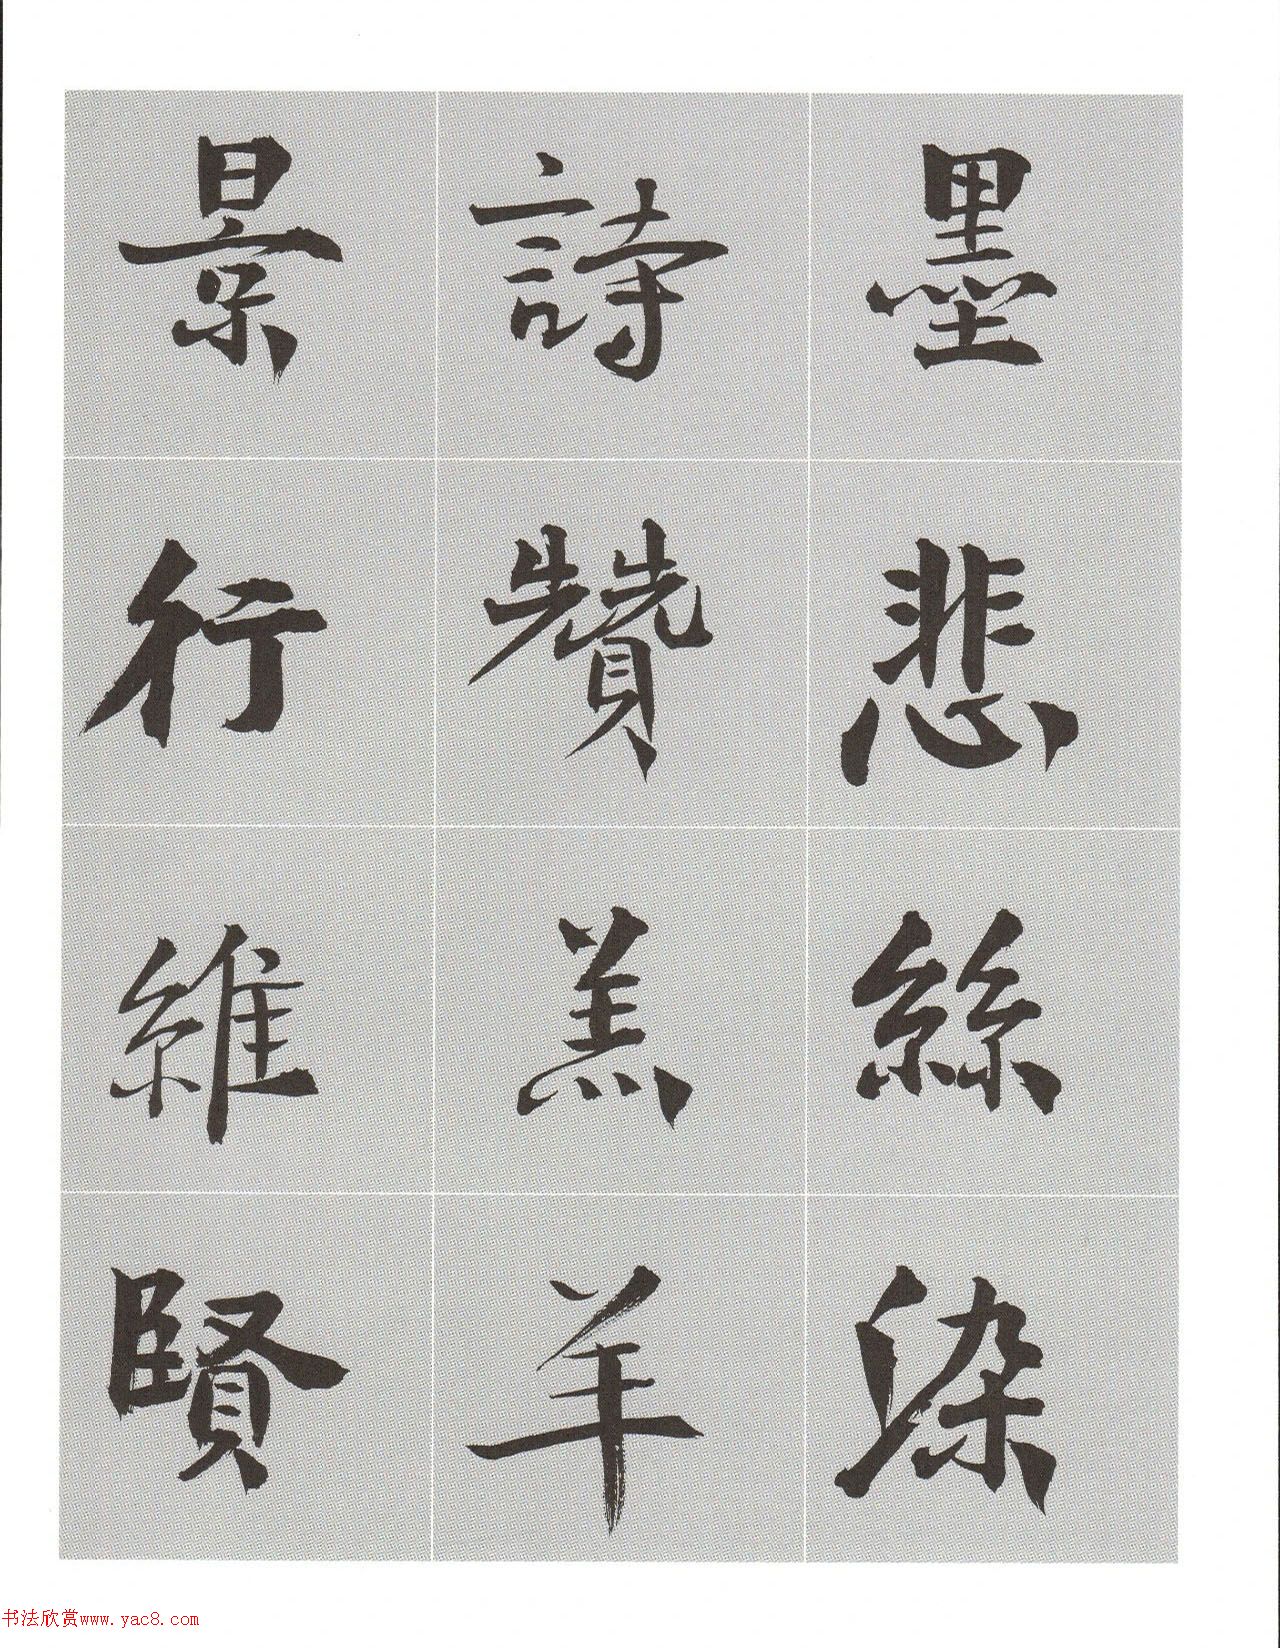 墨悲絲染
詩贊羔羊
景行維賢
书法欣赏www.yac8.com